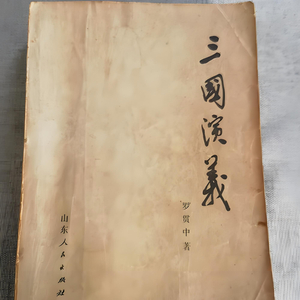 三國演義
罗贯中著
山东人民出版社